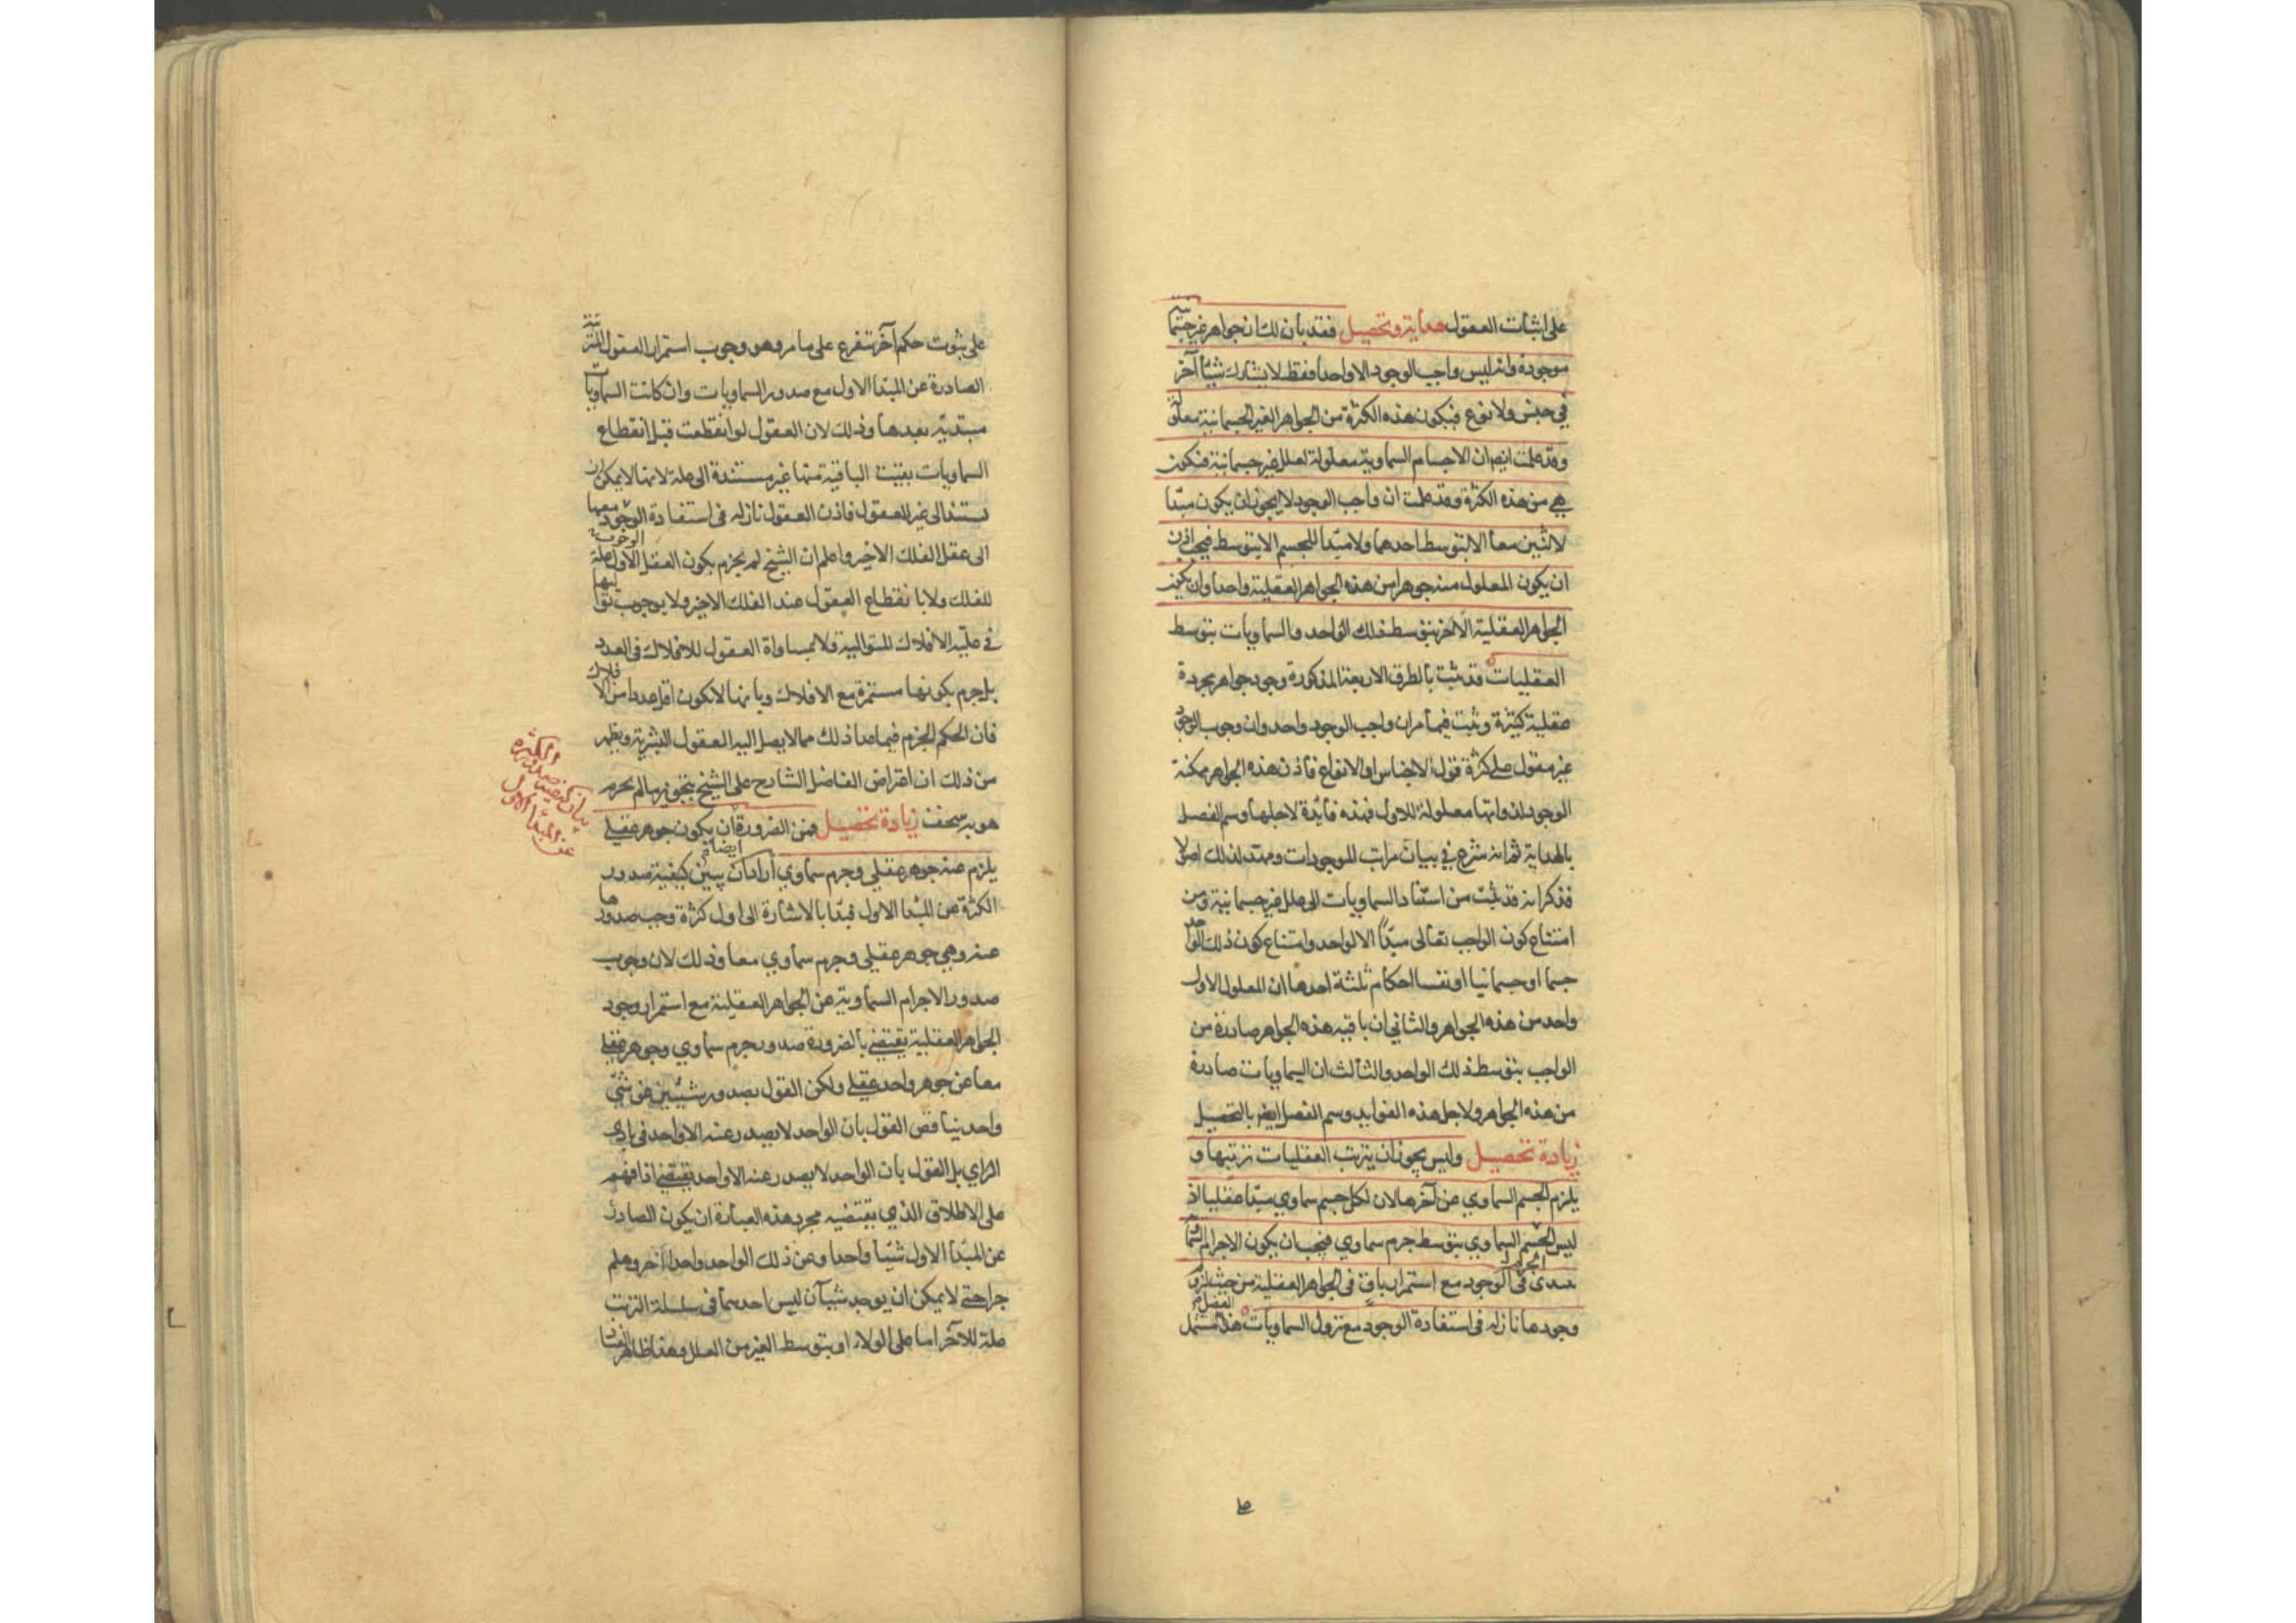 على اثبات العقول هداية وتحصيل فقد بان لك ان جواهر غير جسمانية
موجودة وانه ليس واجب الوجود الا واحدا فقط لا يشارك شيئا آخر
في جنس ولا نوع فيكون هذه الكثرة من الجواهر الغير الجسمانية معلولة
وقد علمت ايضا ان الاجسام السماوية معلولة لعلل غير جسمانية فتكون
هي من هذه الكثرة وقد علمت ان واجب الوجود لا يجوز ان يكون مبدا
لاثنين معا الا بتوسط احدهما ولا مبدا للجسم الا بتوسط فيجب اذن
ان يكون المعلول منه جوهرا من هذه الجواهر العقلية واحدا وان يكون
الجواهر العقلية الاخر بتوسط ذلك الواحد والسماويات بتوسط
العقليات قد ثبت بالطرق الاربعة المذكورة وجود جواهر مجردة
عقلية كثيرة وثبت فيما مر ان واجب الوجود واحد وان وجوب الوجود
غير مقول على كثرة قول الاجناس او الانواع فاذن هذه الجواهر ممكنة
الوجود لذواتها معلولة للاول فهذه فائدة لاجلها وسم الفصل
بالهداية ثم انه شرع في بيان مراتب الموجودات ومهد لذلك اصولا
فذكر انه قد ثبت من استناد السماويات الى علل غير جسمانية ومن
امتناع كون الواجب تعالى مبدأ الا لواحد وامتناع كون ذلك الواحد
جسما او جسمانيا او نفسا احكام ثلثة احدها ان المعلول الاول
واحد من هذه الجواهر والثاني ان باقية هذه الجواهر صادرة من
الواجب بتوسط ذلك الواحد والثالث ان السماويات صادرة
من هذه الجواهر ولاجل هذه الفوايد وسم الفصل ايضا بالتحصيل
زيادة تحصيل وليس يجوز ان يترتب العقليات ترتبها و
يلزم الجسم السماوي عن آخرها لان لكل جسم سماوي مبدا عقليا اذ
ليس الجسم السماوي بتوسط جرم سماوي فيجب ان يكون الاجرام السماوية
تبتدى في الوجود مع استمرار باق في الجواهر العقلية من حيث لزوم
وجودها نازلة في استفادة الوجود مع نزول السماويات هذا الفصل مشتمل
على ثبوت حكم آخر متفرع على ما مر وهو وجوب استمرار العقول المترتبة
الصادرة عن المبدا الاول مع صدور السماويات وان كانت السماويات
مبتدية بعدها وذلك لان العقول لو انقطعت قبل انقطاع
السماويات بقيت الباقية منها غير مستندة الى علة لانها لا يمكن ان
يستند الى غير العقول فاذن العقول نازلة في استفادة الوجود معها
الى عقل الفلك الاخير واعلم ان الشيخ لم يجزم بكون العقل الاول علة
للفلك ولا بانقطاع العقول عند الفلك الاخير ولا بوجوب تواليها
في علية الافلاك المتوالية ولا بمساواة العقول للافلاك في العدد
بل جزم بكونها مستمرة مع الافلاك وبانها لا تكون اقل عددا من الافلاك
فان الحكم الجزم فيما عدا ذلك مما لا يصل اليه العقول البشرية ويظهر
من ذلك ان اعتراض الفاضل الشارح على الشيخ بتجويز ما لم يجزم
هو به سخف زيادة تحصيل فمن الضرورة ان يكون جوهر عقلي
يلزم عنه جوهر عقلي وجرم سماوي اراد ان يبين كيفية صدور
الكثرة عن المبدا الاول فبدا بالاشارة الى اول كثرة وجب صدورها
عنه وهي جوهر عقلي وجرم سماوي معا وذلك لان وجوب
صدور الاجرام السماوية عن الجواهر العقلية مع استمرار وجود
الجواهر العقلية يقتضي بالضرورة صدور جرم سماوي وجوهر عقلي
معا عن جوهر واحد عقلي ولكن القول بصدور شيئين عن شيئ
واحد يناقض القول بان الواحد لا يصدر عنه الا واحد في بادي
الراي بل القول بان الواحد لا يصدر عنه الا واحد يقتضي اذا فهم
على الاطلاق الذي يقتضيه مجرد هذه العبارة ان يكون الصادر
عن المبدا الاول شيئا واحدا وعن ذلك الواحد واحدا آخر وهلم
جرا حتى لا يمكن ان يوجد شيئان ليس احدهما في سلسلة الترتب
علة للآخر اما على الولاء او بتوسط الغير من العلل وهذا ظاهر الفساد
بيان كيفية صدور الكثرة
عن المبدا الاول